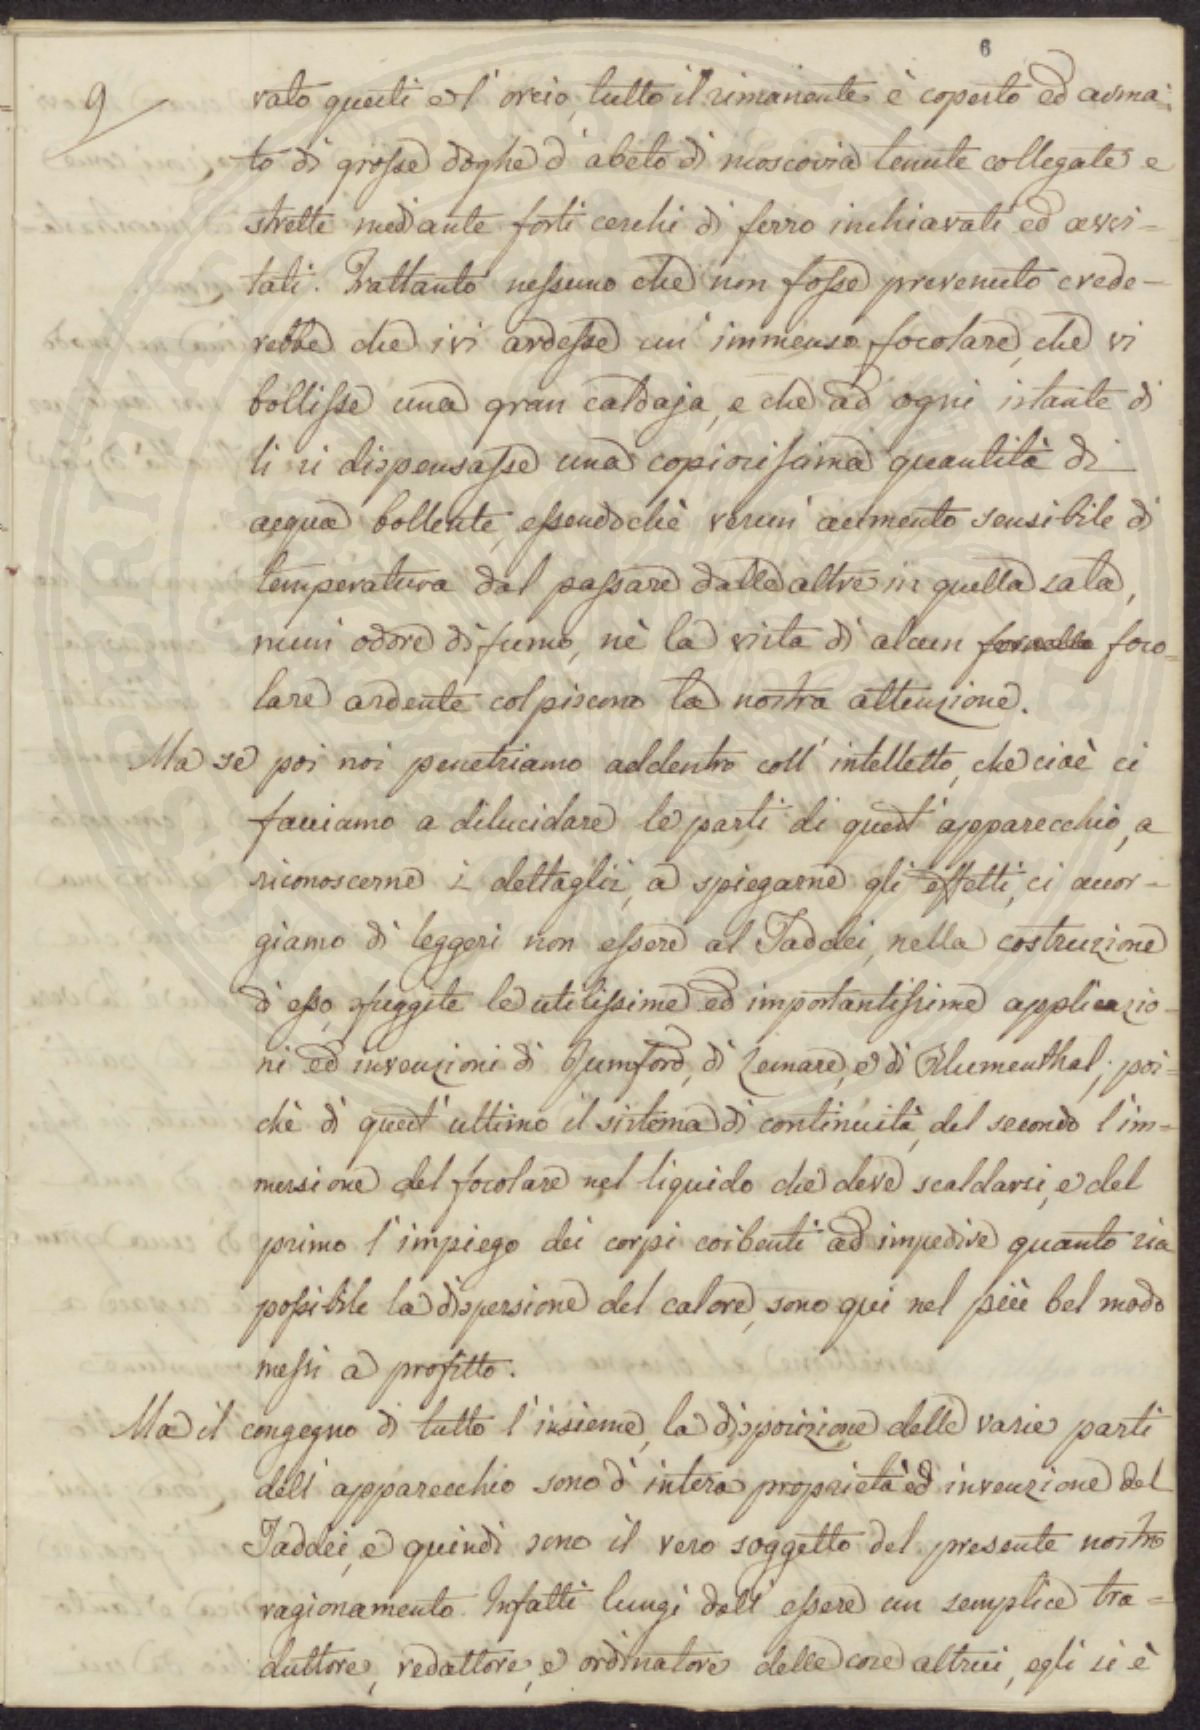 6
9
vato questi ed l'orcio, tutto il rimanente è coperto ed arma-
to di grosse doghe d'abeto di moscovia tenute collegate e
strette mediante forti cerchi di ferro inchiavati ed avvi-
tati. Frattanto nessuno che non fosse prevenuto crede-
rebbe che ivi ardesse un' immenso focolare, che vi
bollisse una gran caldaja, e che ad ogni istante di
li si dispensasse una copiosissima quantità di
acqua bollente, essendochè verun' aumento sensibile di
temperatura dal passare dalle altre in quella sala,
niun odore di fumo, nè la vista di alcun fornello foco-
lare ardente colpiscono la nostra attenzione.
Ma se poi noi penetriamo addentro coll' intelletto, che cioè ci
facciamo a dilucidare le parti di quest' apparecchio, a
riconoscerne i dettaglii, a spiegarne gli effetti, ci accor-
giamo di leggeri non essere al Taddei, nella costruzione
d'esso, sfuggite le utilissime ed importantissime applicazio-
ni ed invenzioni di Rumford, di Lemare, e di Blumenthal; poi-
chè di quest' ultimo il sistema di continuità, del secondo l'im-
mersione del focolare nel liquido che deve scaldarsi, e del
primo l'impiego dei corpi coibenti ad impedire quanto sia
possibile la dispersione del calore, sono qui nel più bel modo
messi a profitto.
Ma il congegno di tutto l'insieme, la disposizione delle varie parti
dell' apparecchio sono d'intera proprietà ed invenzione del
Taddei, e quindi sono il vero soggetto del presente nostro
ragionamento. Infatti lungi dall' essere un semplice tra-
duttore, redattore, e ordinatore delle cose altrui, egli si è